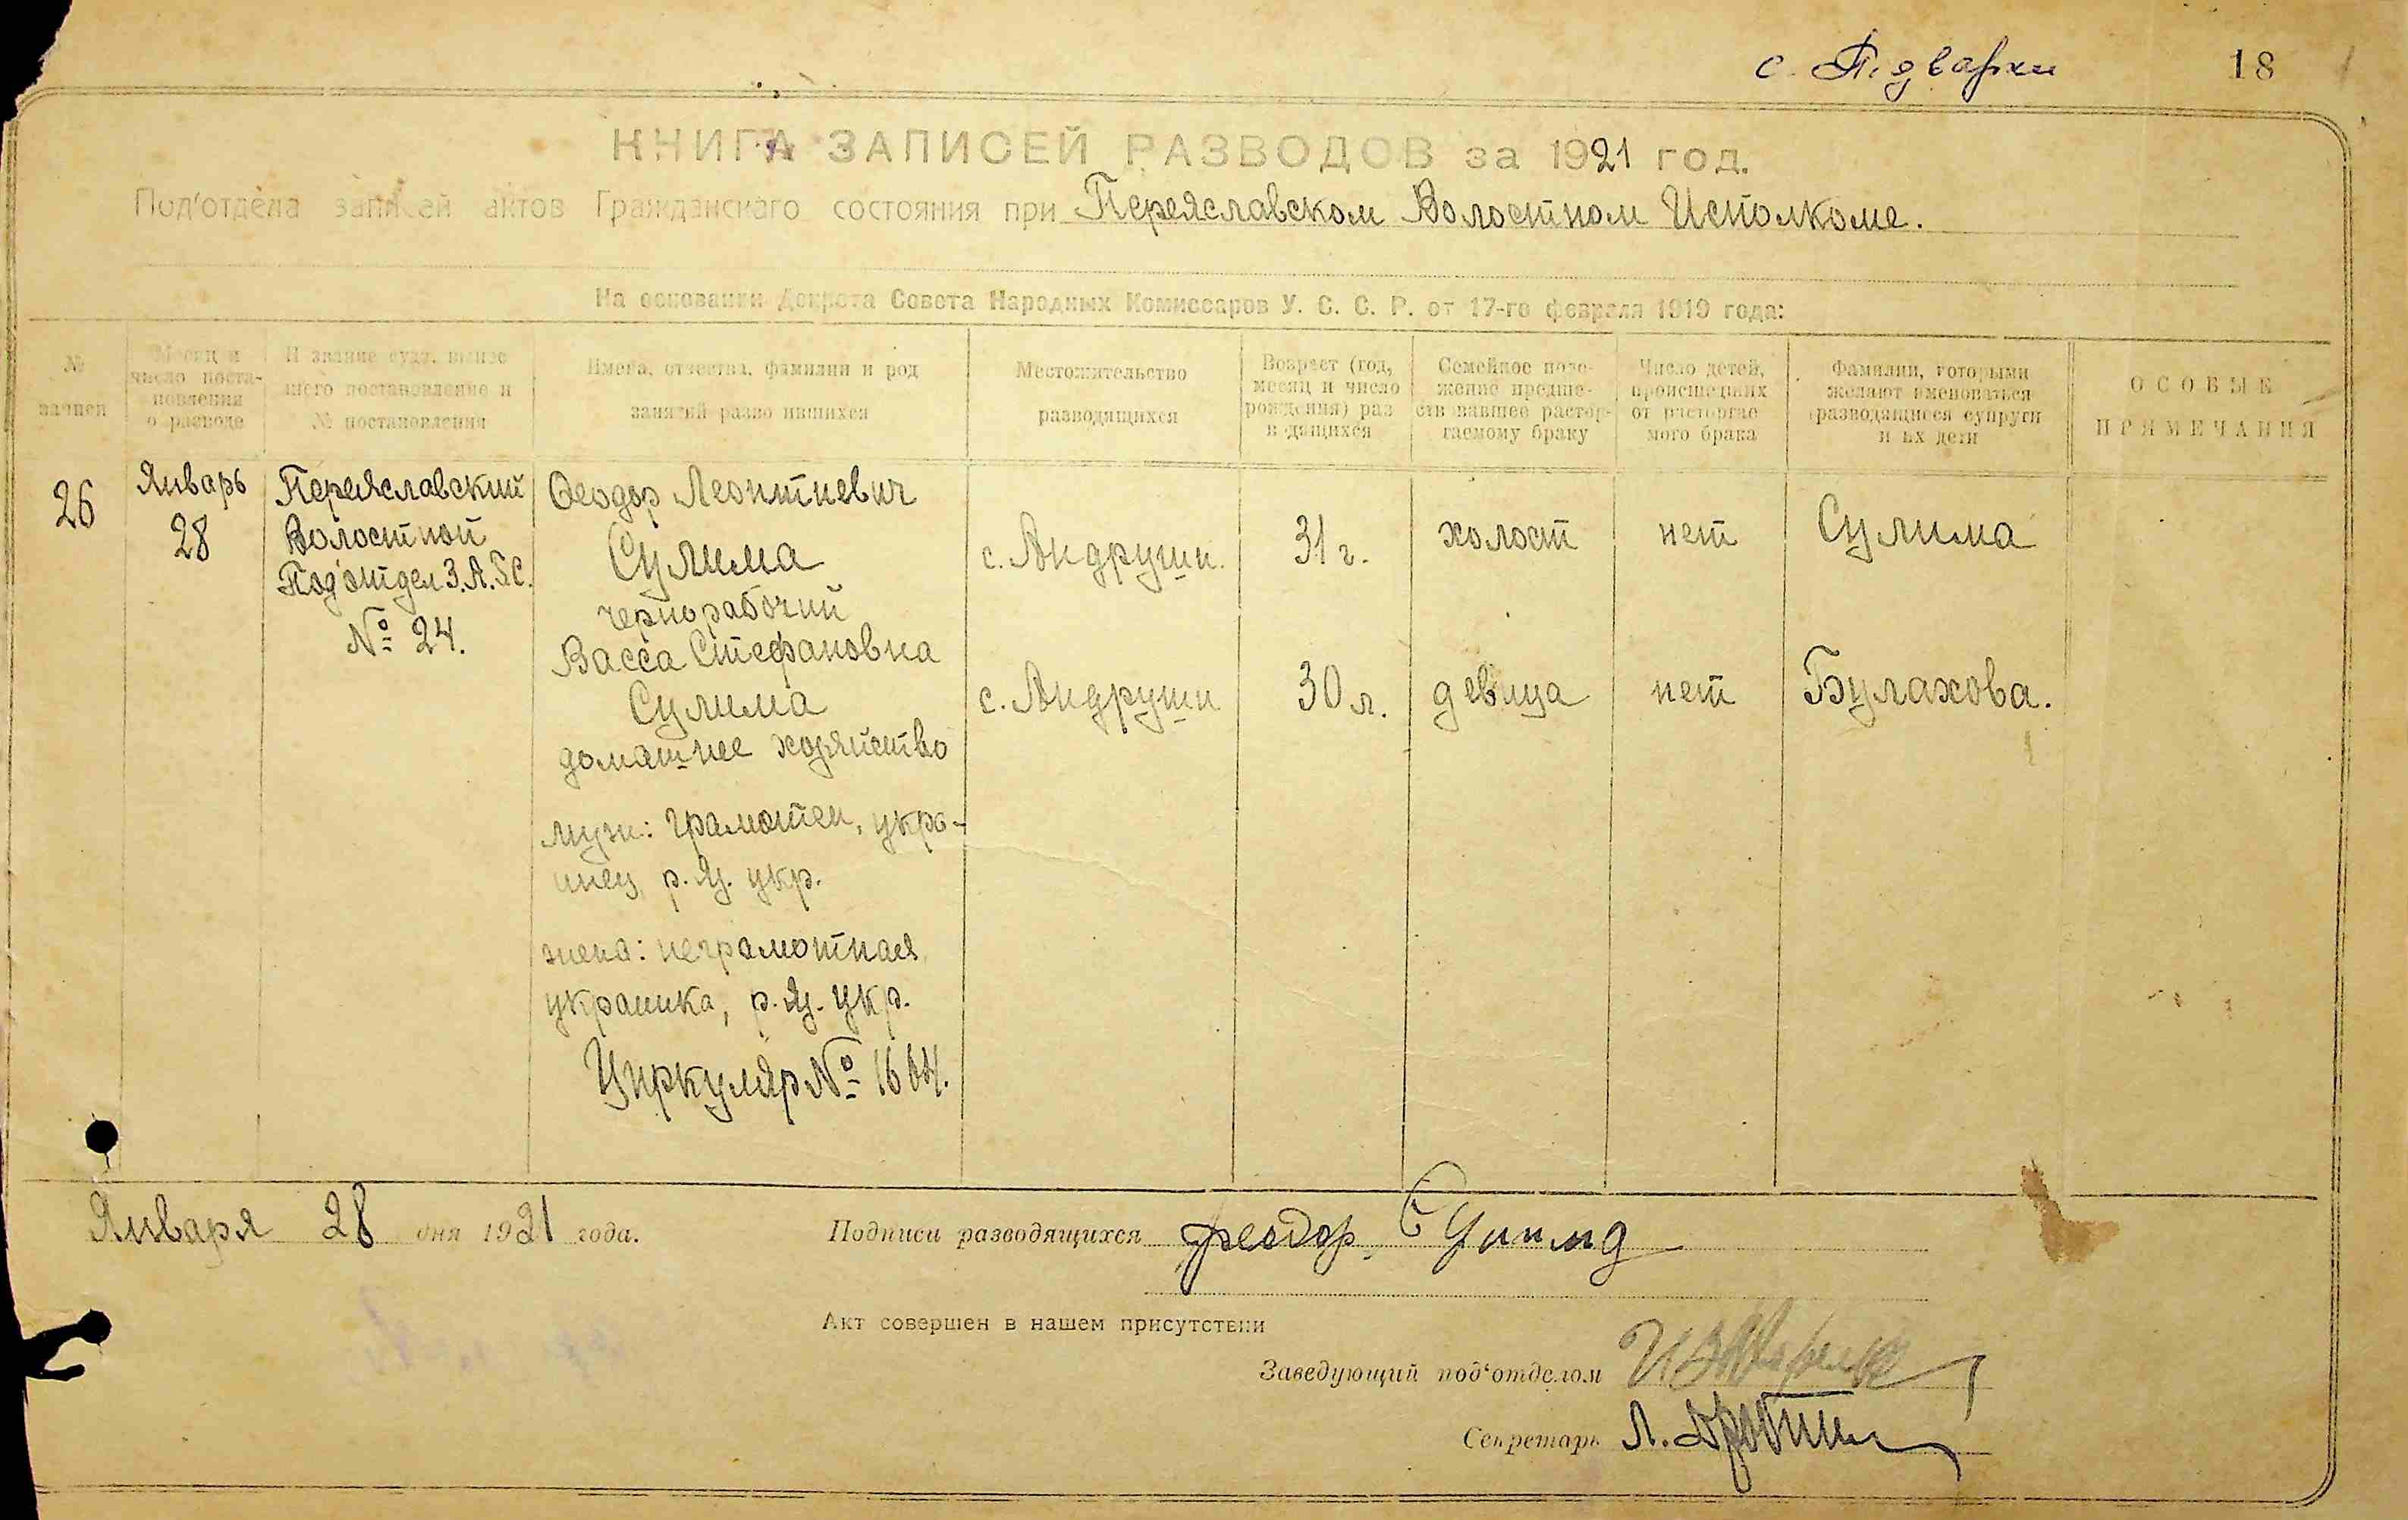 с. Пiдварки 18
КНИГА ЗАПИСЕЙ РАЗВОДОВ за 1921 год.
Под'отдела записей актов Гражданскаго состояния при Переяславском Волостном Исполкоме.
На основании Декрета Совета Народных Комиссаров У. С. С. Р. от 17-го февраля 1919 года:
№
записи
Месяц и
число поста-
новления
о разводе
И звание суда, вынес-
шего постановление и
№ постановления
Имена, отчества, фамилии и род
занятий разводившихся
Местожительство
разводящихся
Возраст (год,
месяц и число
рождения) раз-
водящихся
Семейное поло-
жение предше-
ствовавшее растор-
гаемому браку
Число детей,
происшедших
от расторгае-
мого брака
Фамилии, которыми
желают именоваться
разводящиеся супруги
и их дети
ОСОБЫЕ
ПРИМЕЧАНИЯ
26
Январь
28
Переяславский
Волостной
Под'отдел З.А.Г.С.
№ 24.
Феодор Леонтиевич
Сулима
чернорабочий
с. Андруши.
31 г.
холост
нет
Сулима
Васса Стефановна
Сулима
домашнее хозяйство
с. Андруши
30 л.
девица
нет
Булахова.
муж: грамотен, укра-
инец, р. яз. укр.
жена: неграмотная
украинка, р. яз. укр.
Циркуляр №
Января 28 дня 1921 года.
Подписи разводящихся Феодор Сулима
Акт совершен в нашем присутствии
Заведующий под'отделом
Секретарь Л.